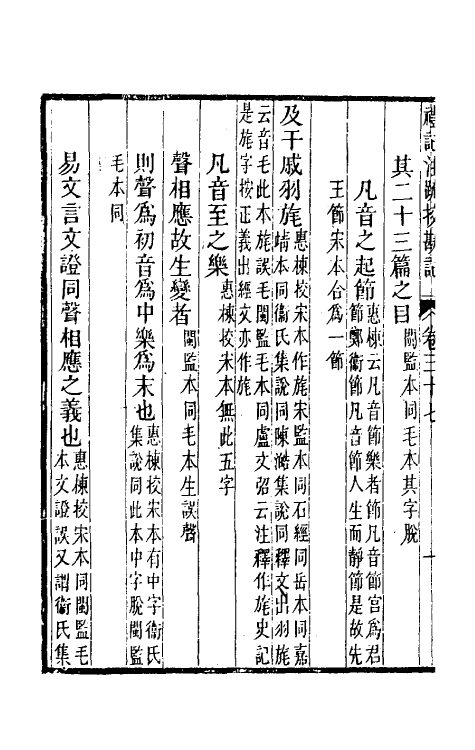 禮記注疏挍勘記 卷三十七 一
其二十三篇之目 閩監本同毛本其字脫
凡音之起節 惠棟云凡音節樂者節凡音節宮爲君
節鄭衞節凡音節人生而靜節是故先
王節宋本合爲一節
及干戚羽旄 惠棟挍宋本作旄宋監本同石經同岳本同嘉
靖本同衞氏集說同陳澔集說同釋文出羽旄
云音毛此本旄誤毛閩監毛本同盧文弨云注釋作旄史記
是旄字按正義出經文亦作旄
凡音至之樂 惠棟挍宋本無此五字
聲相應故生變者 閩監本同毛本生誤聲
則聲爲初音爲中樂爲末也 惠棟挍宋本有中字衞氏
集說同此本中字脫閩監
毛本同
易文言文證同聲相應之義也 惠棟挍宋本同閩監毛
本文證誤又謂衞氏集